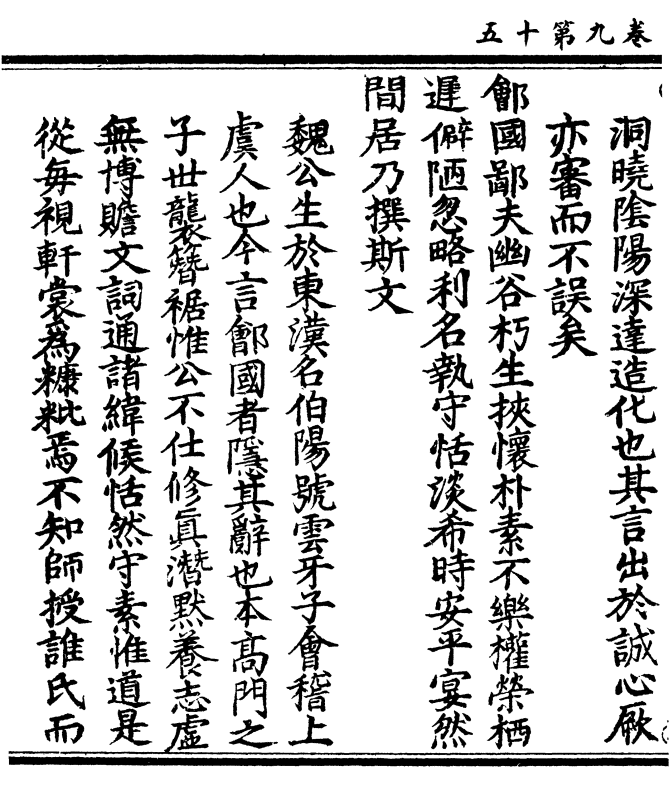 卷九第十五
洞曉陰陽深達造化也其言出於誠心厥
亦審而不誤矣
鄶國鄙夫幽谷朽生挾懷朴素不樂權榮栖
遲僻陋忽略利名執守恬淡希時安平宴然
閒居乃撰斯文
魏公生於東漢名伯陽號雲牙子會稽上
虞人也今言鄶國者隱其辭也本高門之
子世襲簪裾惟公不仕修眞潛默養志虛
無博贍文詞通諸緯候恬然守素惟道是
從每視軒裳為糠粃焉不知師授誰氏而